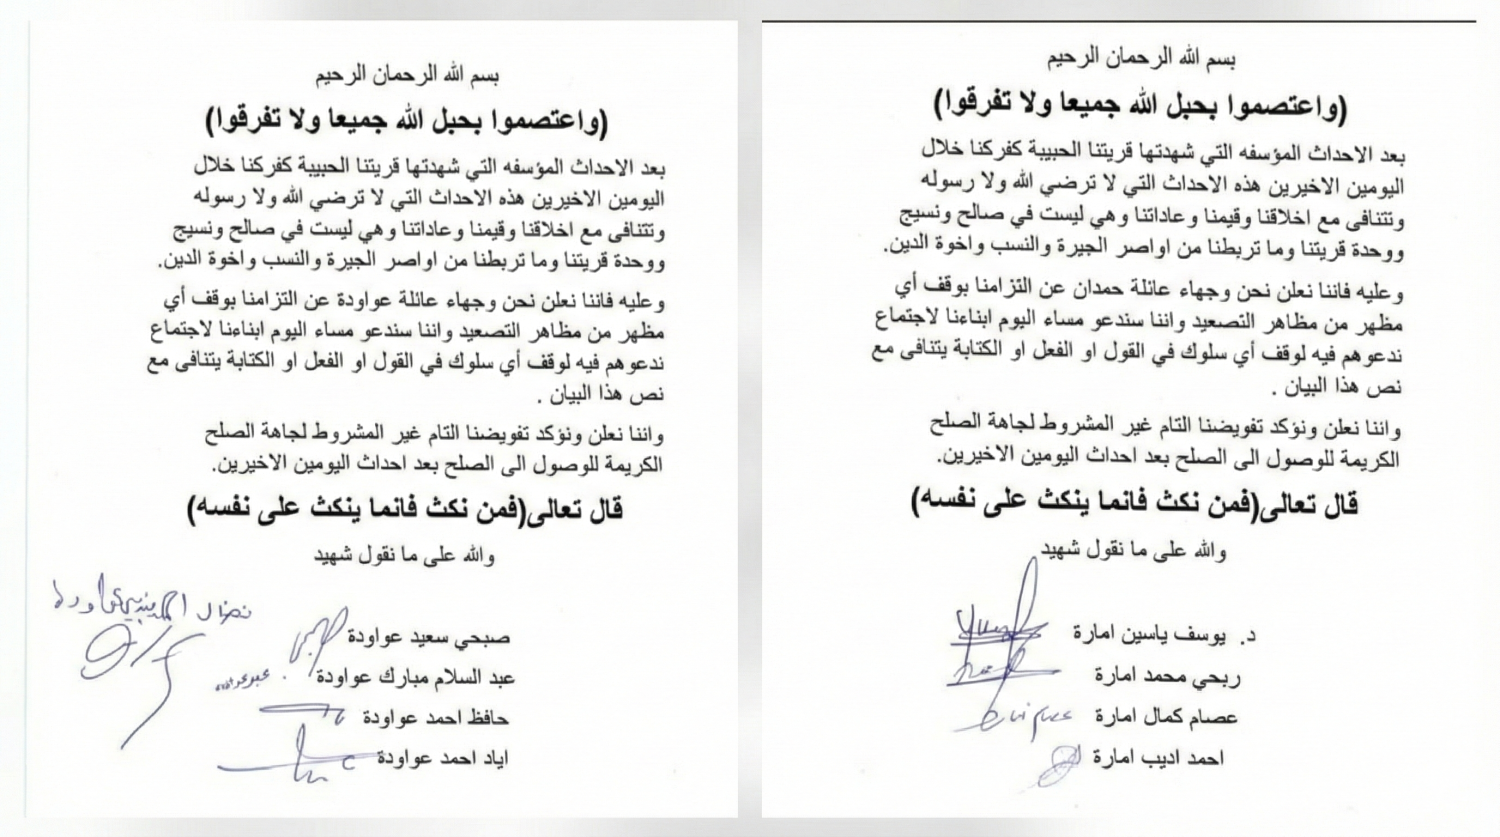 بسم الله الرحمان الرحيم
(واعتصموا بحبل الله جميعا ولا تفرقوا)
بعد الاحداث المؤسفه التي شهدتها قريتنا الحبيبة كفركنا خلال
اليومين الاخيرين هذه الاحداث التي لا ترضي الله ولا رسوله
وتتنافى مع اخلاقنا وقيمنا وعاداتنا وهي ليست في صالح ونسيج
ووحدة قريتنا وما تربطنا من اواصر الجيرة والنسب واخوة الدين.
وعليه فاننا نعلن نحن وجهاء عائلة عواودة عن التزامنا بوقف أي
مظهر من مظاهر التصعيد واننا سندعو مساء اليوم ابناءنا لاجتماع
ندعوهم فيه لوقف أي سلوك في القول او الفعل او الكتابة يتنافى مع
نص هذا البيان .
واننا نعلن ونؤكد تفويضنا التام غير المشروط لجاهة الصلح
الكريمة للوصول الى الصلح بعد احداث اليومين الاخيرين.
قال تعالى(فمن نكث فانما ينكث على نفسه)
والله على ما نقول شهيد
نضال عواودة
صبحي سعيد عواودة
عبد السلام مبارك عواودة
حافظ احمد عواودة
اياد احمد عواودة
بسم الله الرحمان الرحيم
(واعتصموا بحبل الله جميعا ولا تفرقوا)
بعد الاحداث المؤسفه التي شهدتها قريتنا الحبيبة كفركنا خلال
اليومين الاخيرين هذه الاحداث التي لا ترضي الله ولا رسوله
وتتنافى مع اخلاقنا وقيمنا وعاداتنا وهي ليست في صالح ونسيج
ووحدة قريتنا وما تربطنا من اواصر الجيرة والنسب واخوة الدين.
وعليه فاننا نعلن نحن وجهاء عائلة حمدان عن التزامنا بوقف أي
مظهر من مظاهر التصعيد واننا سندعو مساء اليوم ابناءنا لاجتماع
ندعوهم فيه لوقف أي سلوك في القول او الفعل او الكتابة يتنافى مع
نص هذا البيان .
واننا نعلن ونؤكد تفويضنا التام غير المشروط لجاهة الصلح
الكريمة للوصول الى الصلح بعد احداث اليومين الاخيرين.
قال تعالى(فمن نكث فانما ينكث على نفسه)
والله على ما نقول شهيد
د. يوسف ياسين امارة
ربحي محمد امارة
عصام كمال امارة
احمد اديب امارة